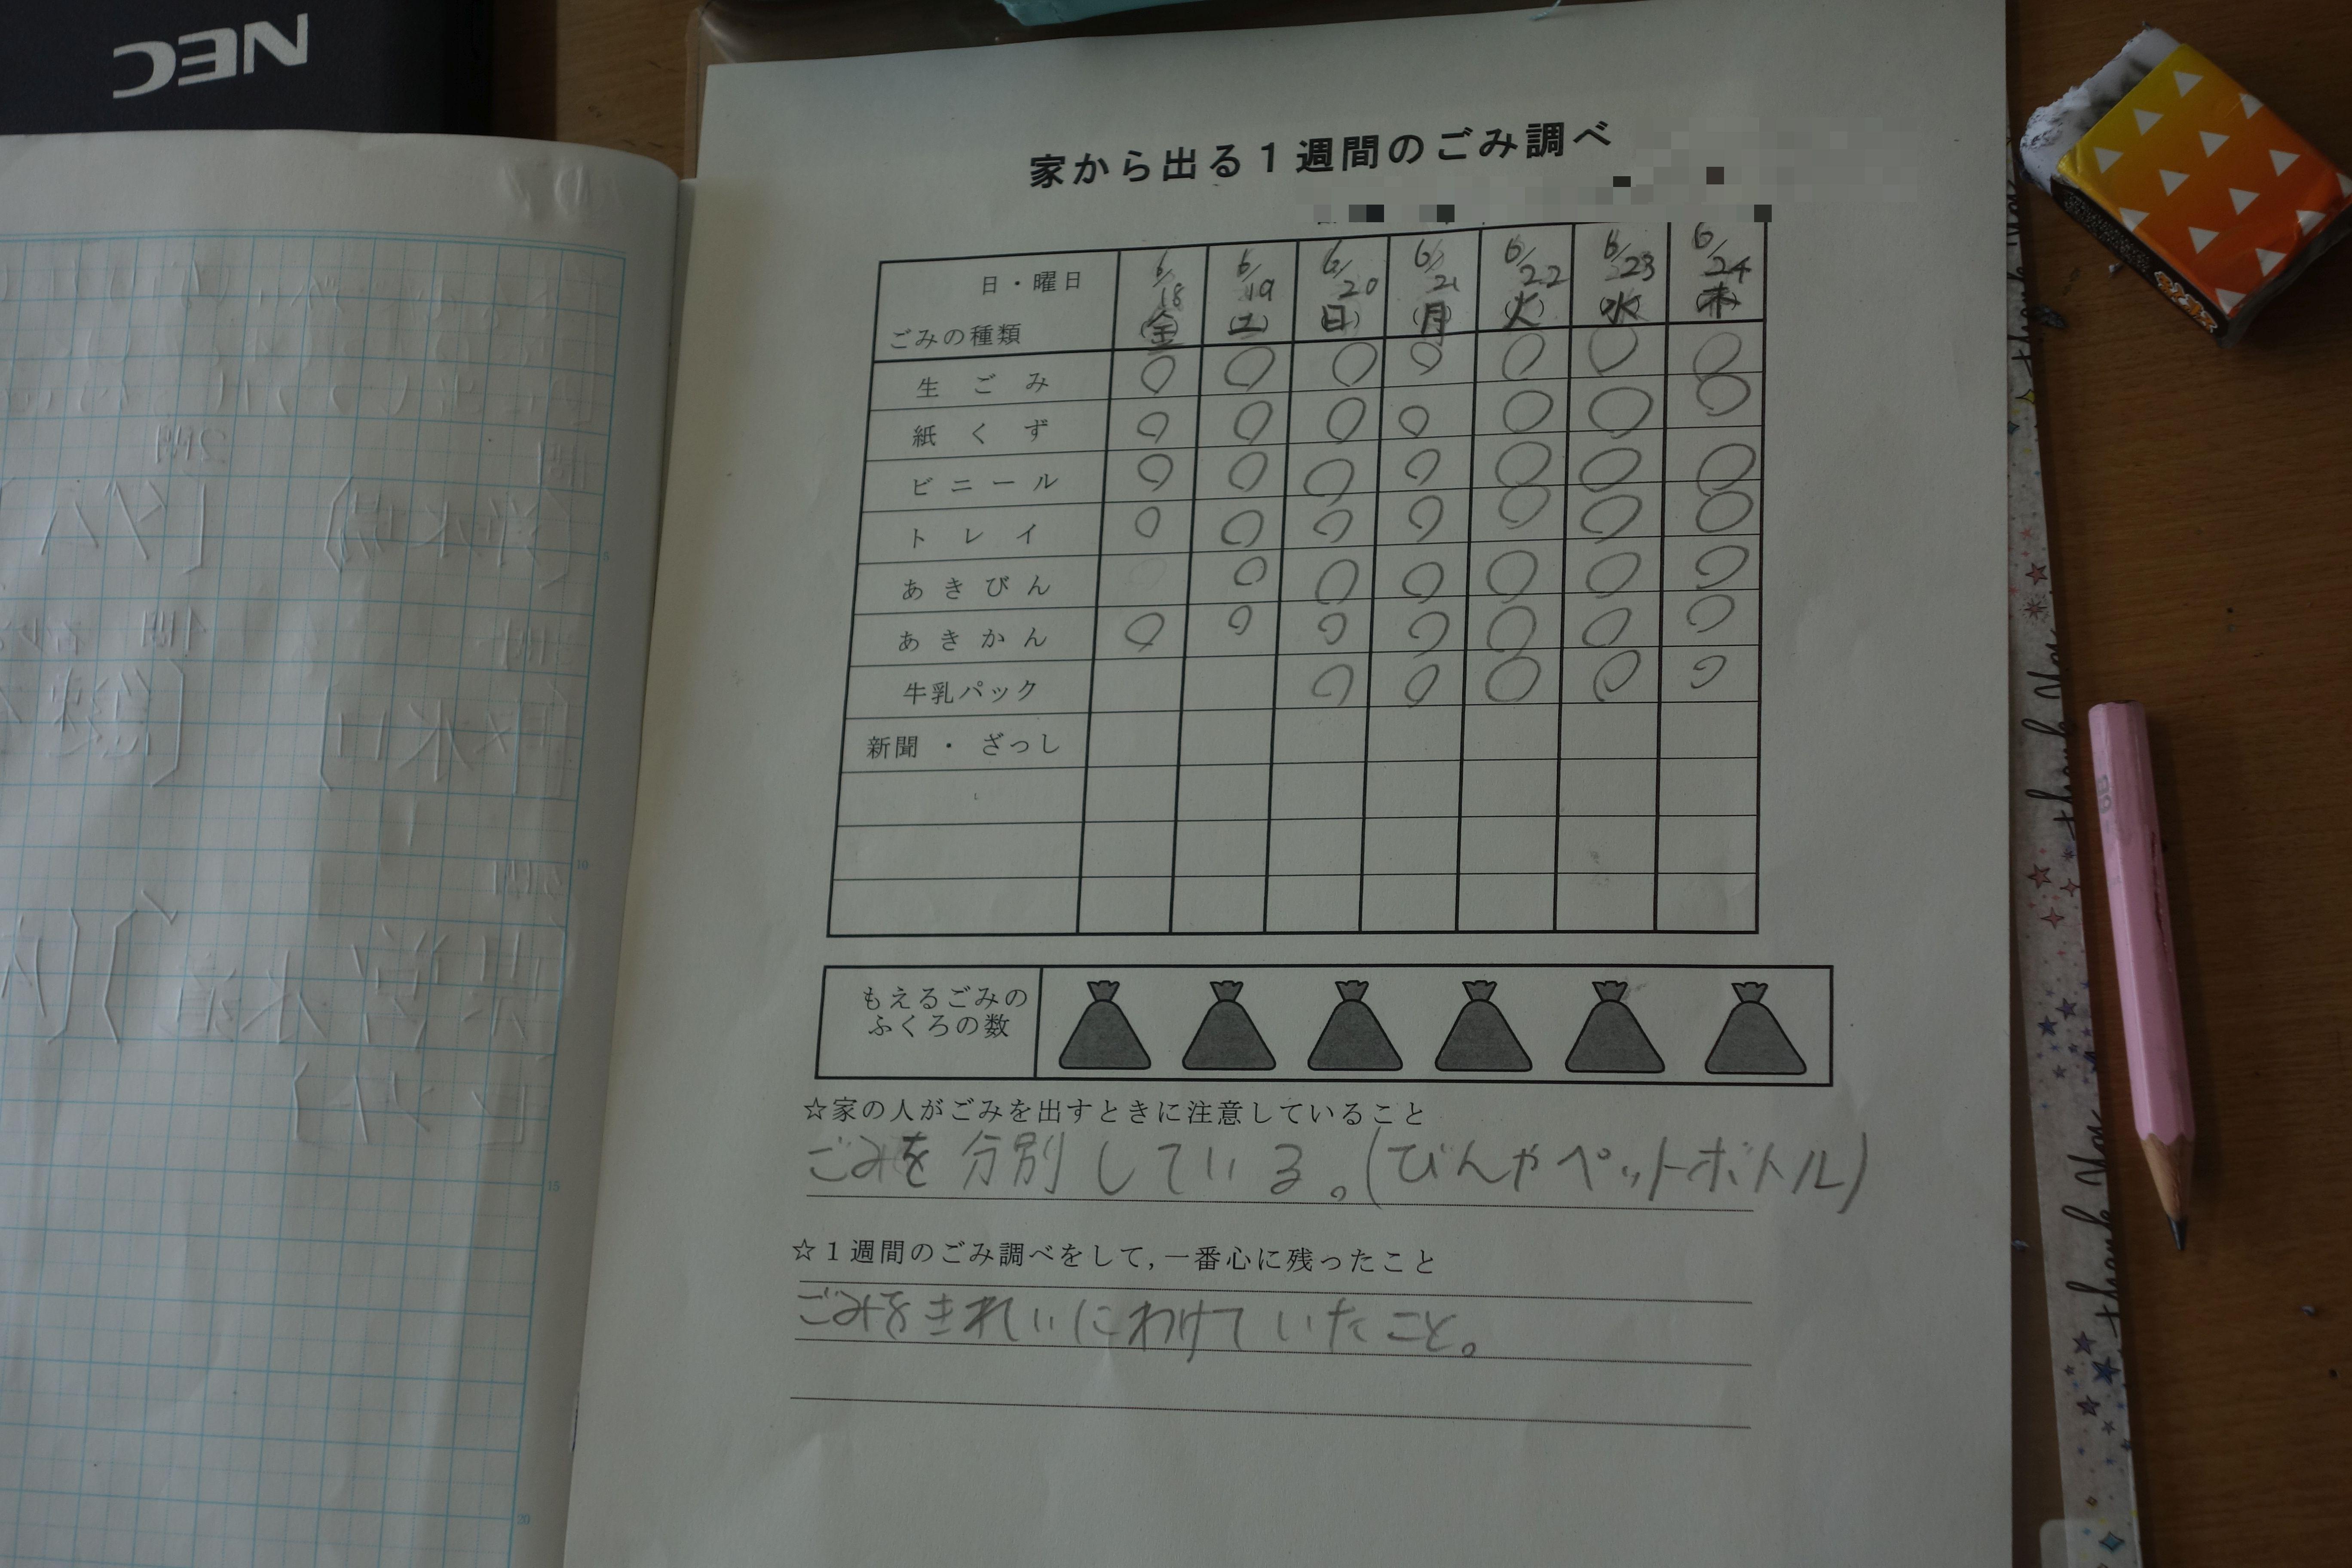 NEC
家から出る１週間のごみ調べ
日・曜日
ごみの種類
6/18 (金) 6/19 (土) 6/20 (日) 6/21 (月) 6/22 (火) 6/23 (水) 6/24 (木)
生ごみ ○ ○ ○ ○ ○ ○ ○
紙くず ○ ○ ○ ○ ○ ○ ○
ビニール ○ ○ ○ ○ ○ ○ ○
トレイ ○ ○ ○ ○ ○ ○ ○
あきびん ○ ○ ○ ○ ○ ○
あきかん ○ ○ ○ ○ ○ ○ ○
牛乳パック ○ ○ ○ ○ ○
新聞・ざっし
もえるごみの
ふくろの数
☆家の人がごみを出すときに注意していること
ごみを分別している。(びんやペットボトル)
☆１週間のごみ調べをして,一番心に残ったこと
ごみをきれいにわけていたこと。
5
10
15
20
thank you
thank you
thank you